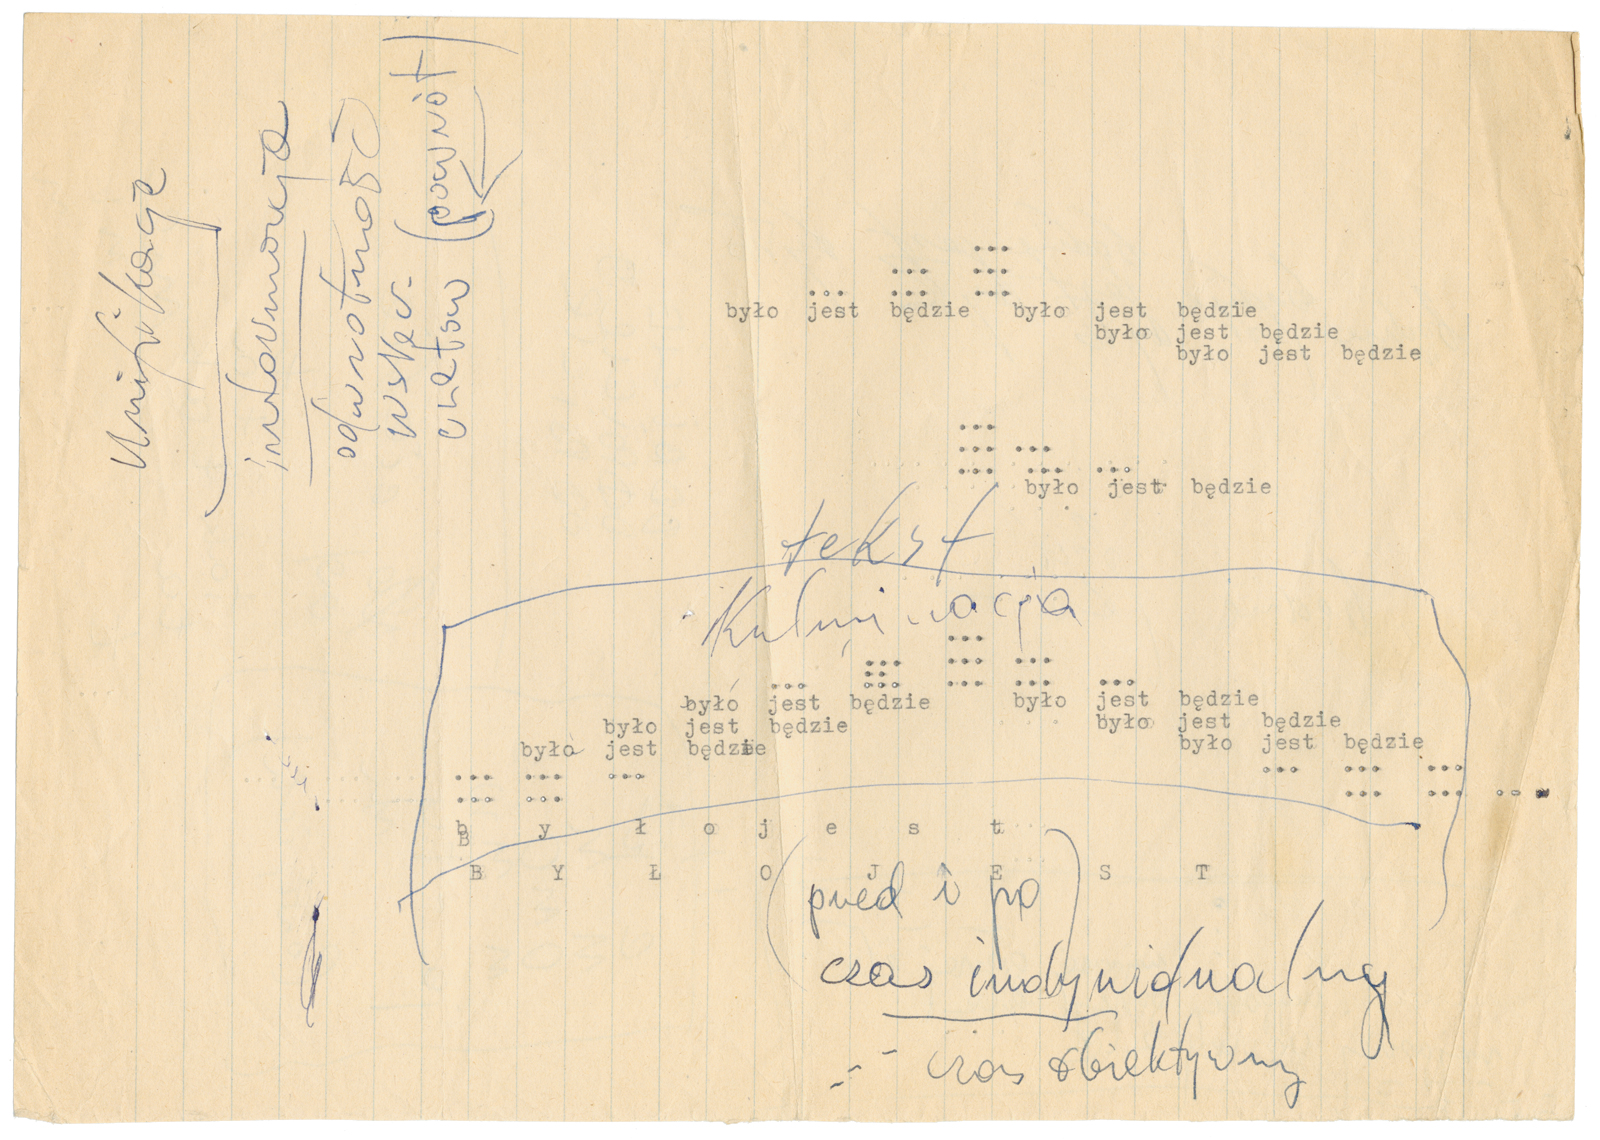 Unifikacja
informacja
odwrotność
wektorów (powrót)
... ... ...
było jest będzie było jest będzie
było jest będzie
było jest będzie
było jest będzie
tekst
Kulminacja
było jest będzie było jest będzie
było jest będzie było jest będzie
było jest będzie było jest będzie
b y ł o j e s t
B
B Y Ł O J E S T
(przed i po)
czas indywidualny
czas obiektywny